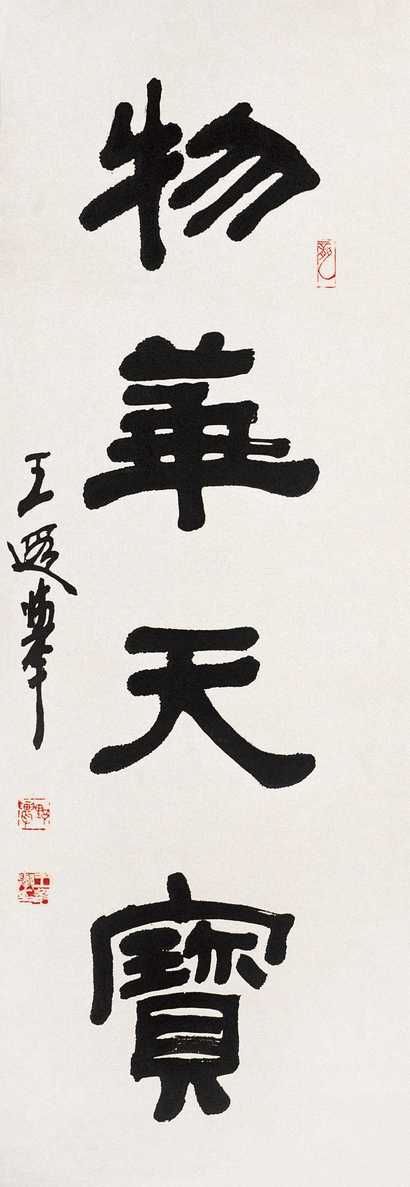 物華天寶
王遐舉